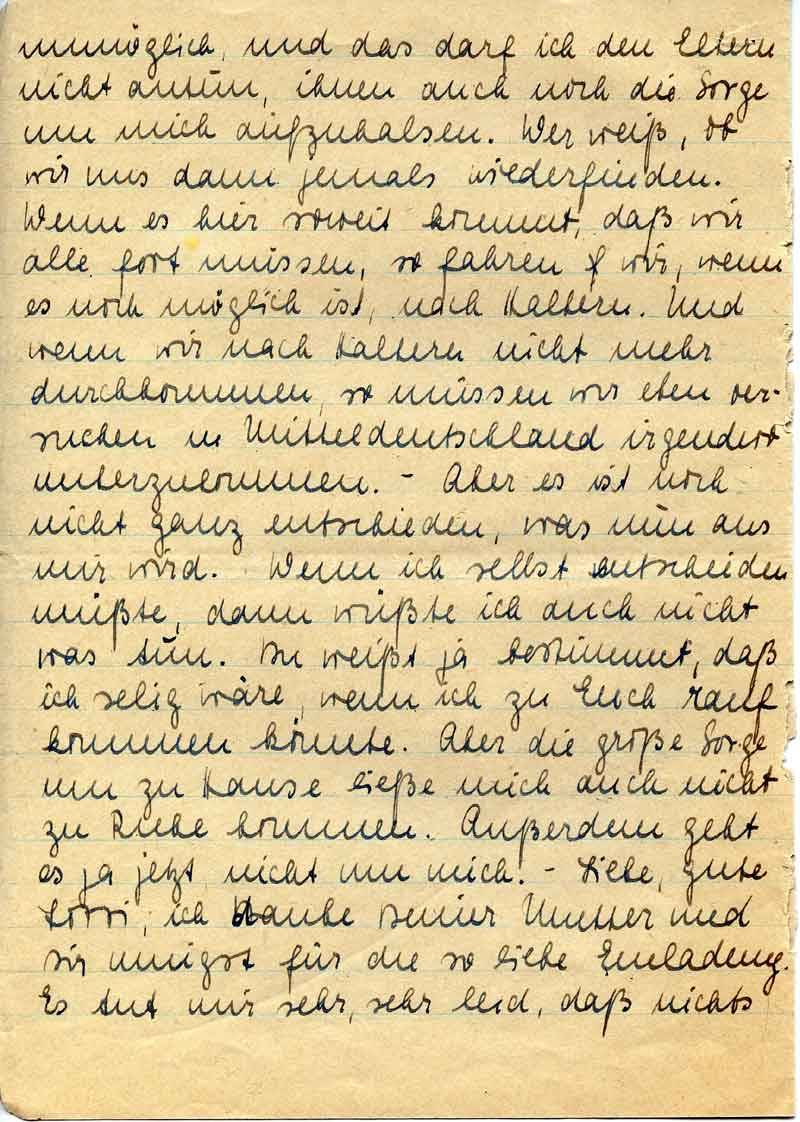 unmöglich, und das darf ich den Eltern
nicht antun, ihnen auch noch die Sorge
um mich aufzuhalsen. Wer weiß, ob
wir uns dann jemals wiederfinden.
Wenn es hier soweit kommt, daß wir
alle fort müssen, so fahren wir, wenn
es noch möglich ist, nach Haltern. Und
wenn wir nach Haltern nicht mehr
durchkommen, so müssen wir eben ver-
suchen in Mitteldeutschland irgendwo
unterzukommen. - Aber es ist noch
nicht ganz entschieden, was nun aus
mir wird. Wenn ich selbst entscheiden
müßte, dann wüßte ich auch nicht
was tun. Du weißt ja bestimmt, daß
ich selig wäre, wenn ich zu Euch rauf
kommen könnte. Aber die große Sorge
um zu Hause ließe mich auch nicht
zu Ruhe kommen. Außerdem geht
es ja jetzt nicht um mich. - Liebe, gute
ich danke Deiner Mutter und
Dir innigst für die so liebe Einladung.
Es tut mir sehr, sehr leid, daß nichts